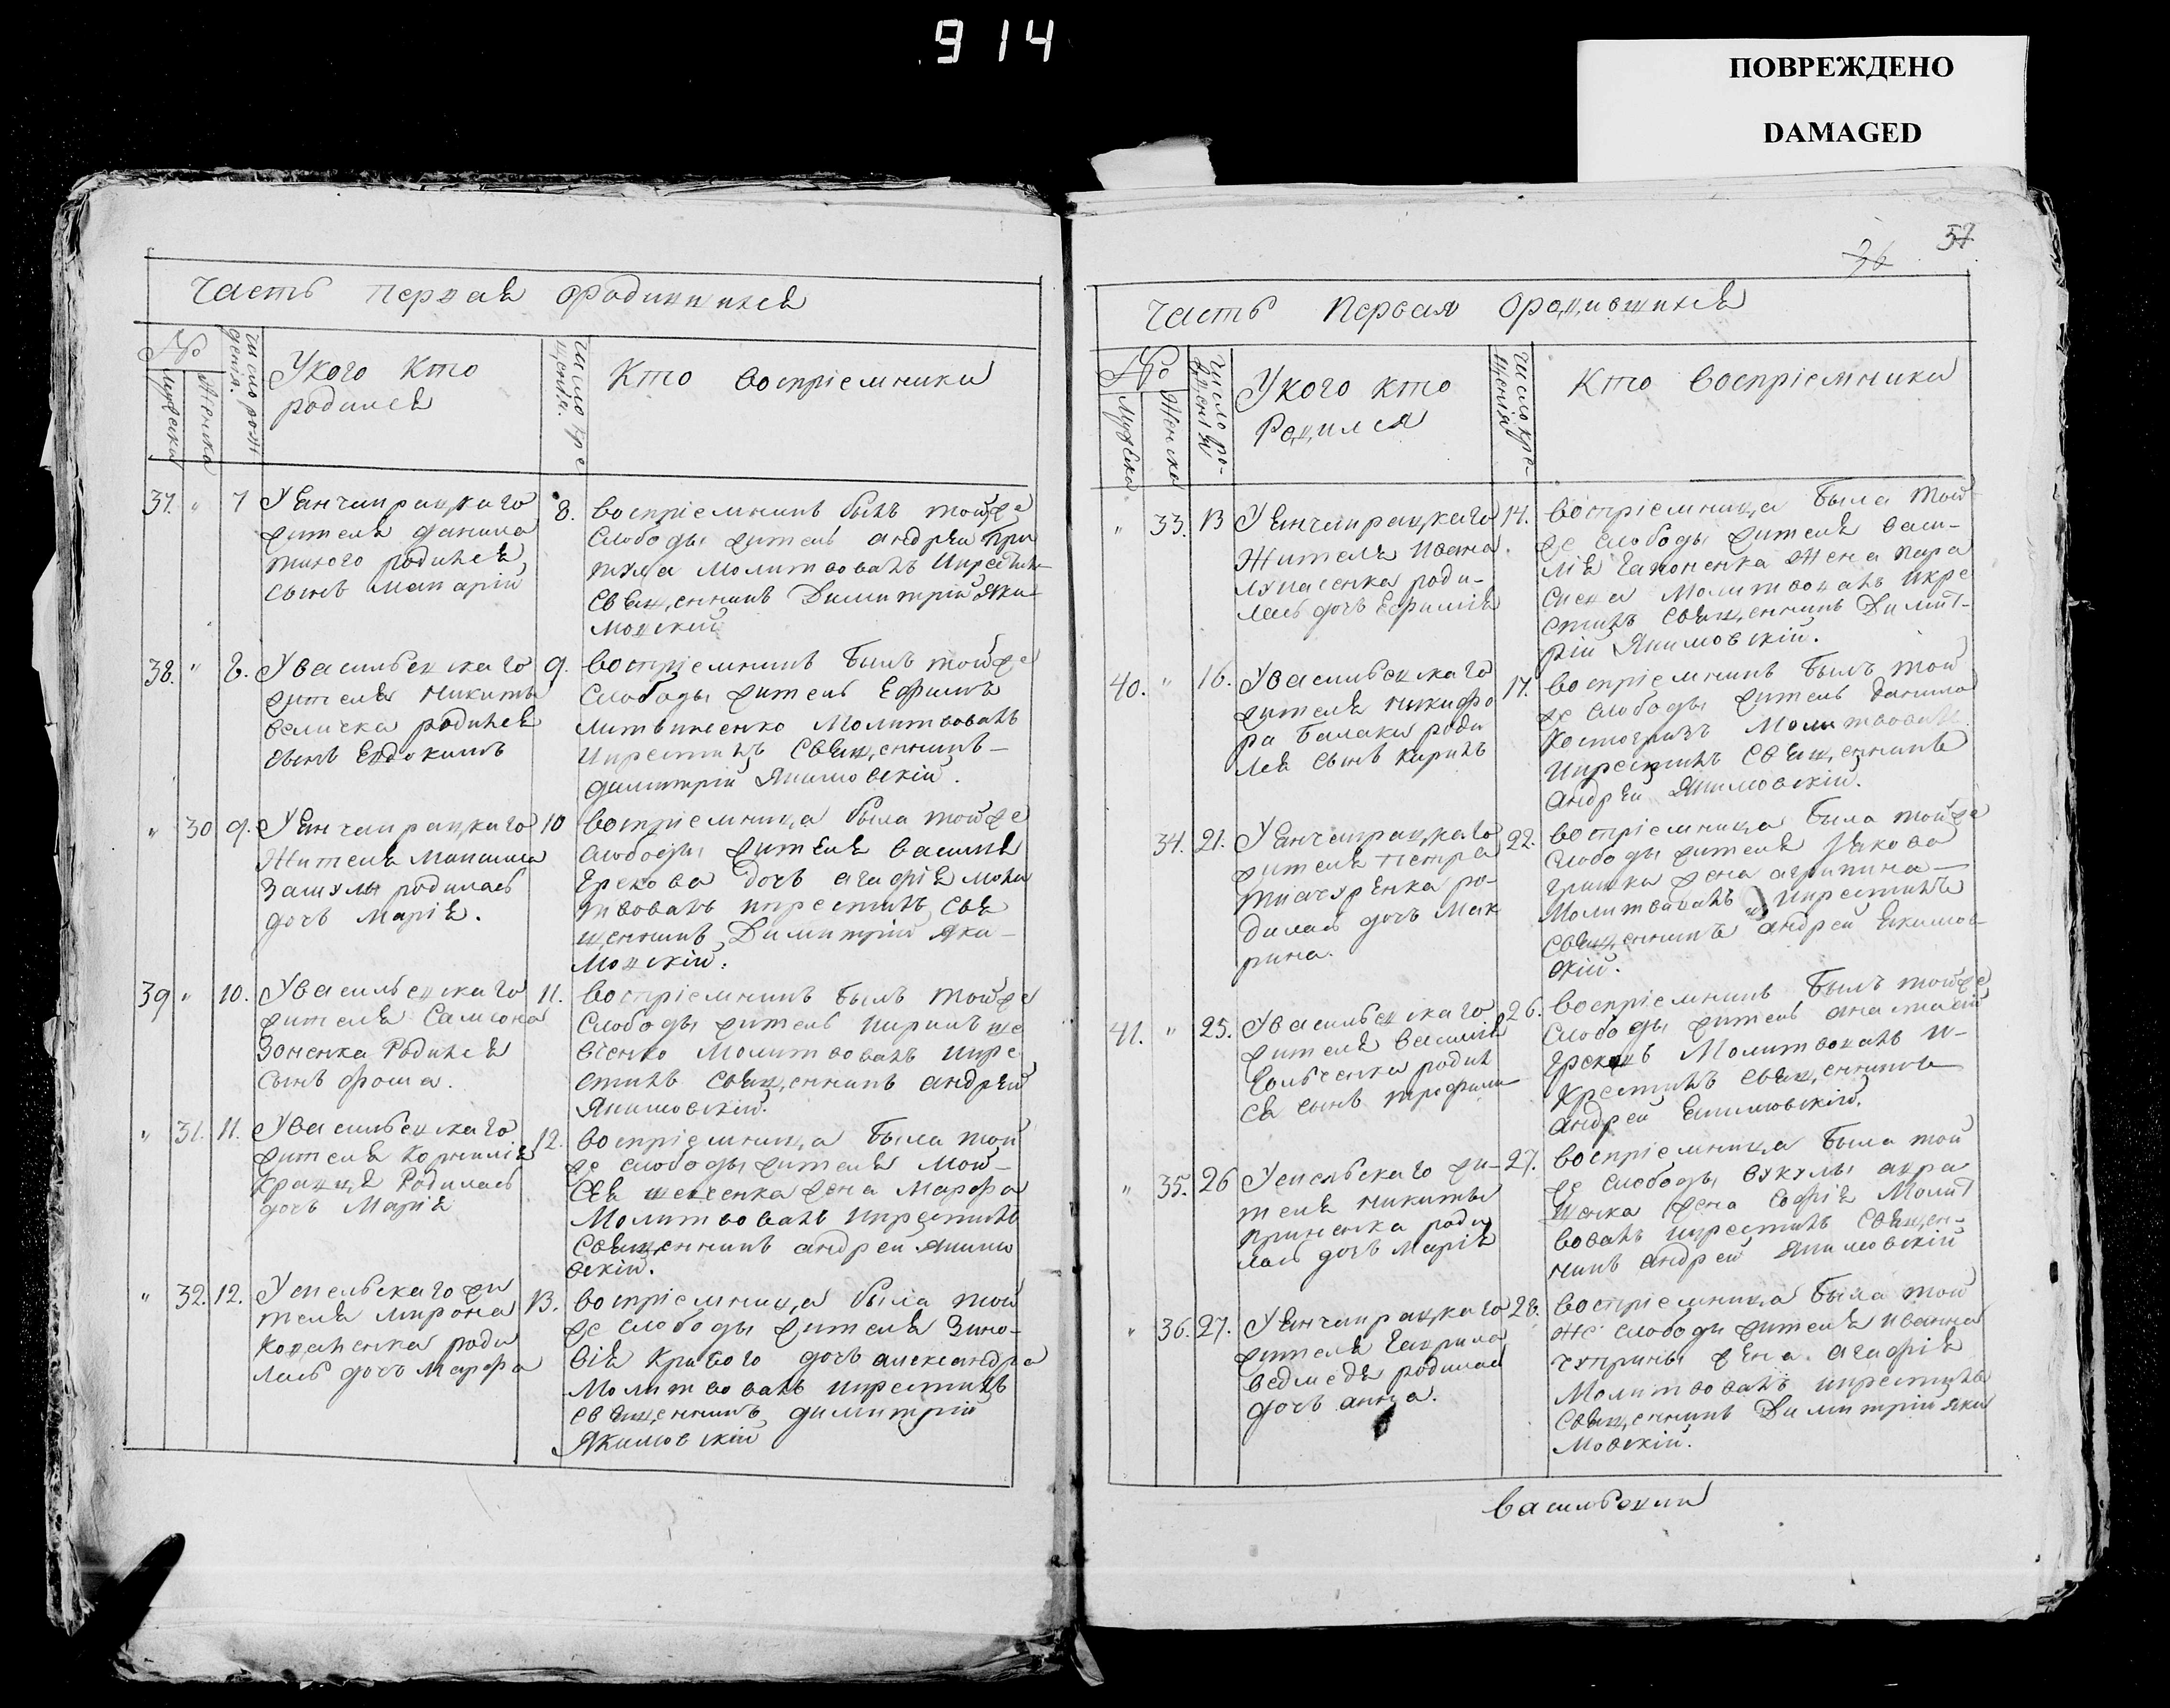 914
ПОВРЕЖДЕНО
DAMAGED
Часть первая ородившихся
№
мужска
женска
число рож
дения.
Укого Кто
родился
число кре
щения.
Кто восприемники
37. " 7 Уянчакрацкаго
жителя данила
родился
сынъ макарий
8. восприемникъ былъ тойже
слободы житель андрей
молитвовалъ икрестилъ
священникъ Димитрий Яки
мовский
38. " 8. Увасильевскаго
жителя никиты
величка родился
сынъ Евдокимъ
9. восприемникъ былъ тойже
слободы житель Ефимъ
литвиненко молитвовалъ
икрестилъ священникъ
димитрий Якимовский.
" 30 9. Уянчакрацкаго
Жителя
родилась
дочь Мария.
10 восприемница была тойже
слободы жителя василия
грекова дочь агафия моли
твовалъ икрестилъ свя
щенникъ Димитрий Яки
мовский.
39 " 10. Увасильевскаго
жителя Самсона
Зоненка Родился
сынъ фома.
11. восприемникъ былъ тойже
слободы житель кирилъ ше
вченко молитвовалъ икре
стилъ священникъ андрей
Якимовский.
" 31. 11. Увасильевскаго
жителя корнилия
кравця Родилась
дочь Мария
12. восприемница была той
же слободы жителя мой
сея шевченка жена марфа
Молитвовалъ икрестилъ
священникъ андрей якимо
вский.
" 32. 12. жи
теля мирона
коваленка роди
лась дочь Марфа
13. восприемница была той
же слободы жителя Зино
вия кривого дочь александра
Молитвовалъ икрестилъ
священникъ димитрий
Якимовский
36 57.
Часть Первая Ородившихся
№
Мужска
Женска
число ро-
ждения
Укого кто
Родился
число кре-
щения
Кто восприемники
" 33. 13 Уянчакрацкаго
Жителя ивана
лупасенка роди-
лась дочь Ефимия
14. восприемница была той
же слободы жителя васи-
лия гапоненка жена пара
скева Молитвовалъ икре
стилъ священникъ Димит-
рий Якимовский.
40. " 16. Увасильевскаго
жителя никифо
ра балаки роди
лся сынъ кирилъ
17. восприемникъ былъ той
же слободы житель данило
костогризъ молитвовалъ
икрестилъ священникъ
андрей Якимовский.
34. 21. Уянчакрацкаго
жителя петра
ро-
дилась дочь Мак
рина.
22. восприемница была тойже
слободы жителя якова
гришки жена агрипина
Молитвовалъ икрестилъ
священникъ андрей Якимов
ский.
41. " 25. Увасильевскаго
жителя василия
родил
ся сынъ трофим
26. восприемникъ былъ тойже
слободы житель анастасий
грековъ Молитвовалъ и-
крестилъ священникъ
андрей Якимовский.
" 35. 26 жи-
теля никиты
гриненка роди
лась дочь Мария
27. восприемница была той
же слободы вукулы
жена София Молит
вовалъ икрестилъ священ-
никъ андрей Якимовский
" 36. 27. Уянчакрацкаго
жителя гаврила
ведмедя родилась
дочь анна.
28. восприемница была той
же слободы жителя иванна
чуприны жена агафия
Молитвовалъ икрестилъ
священникъ Димитрий Яки
мовский.
васильевки